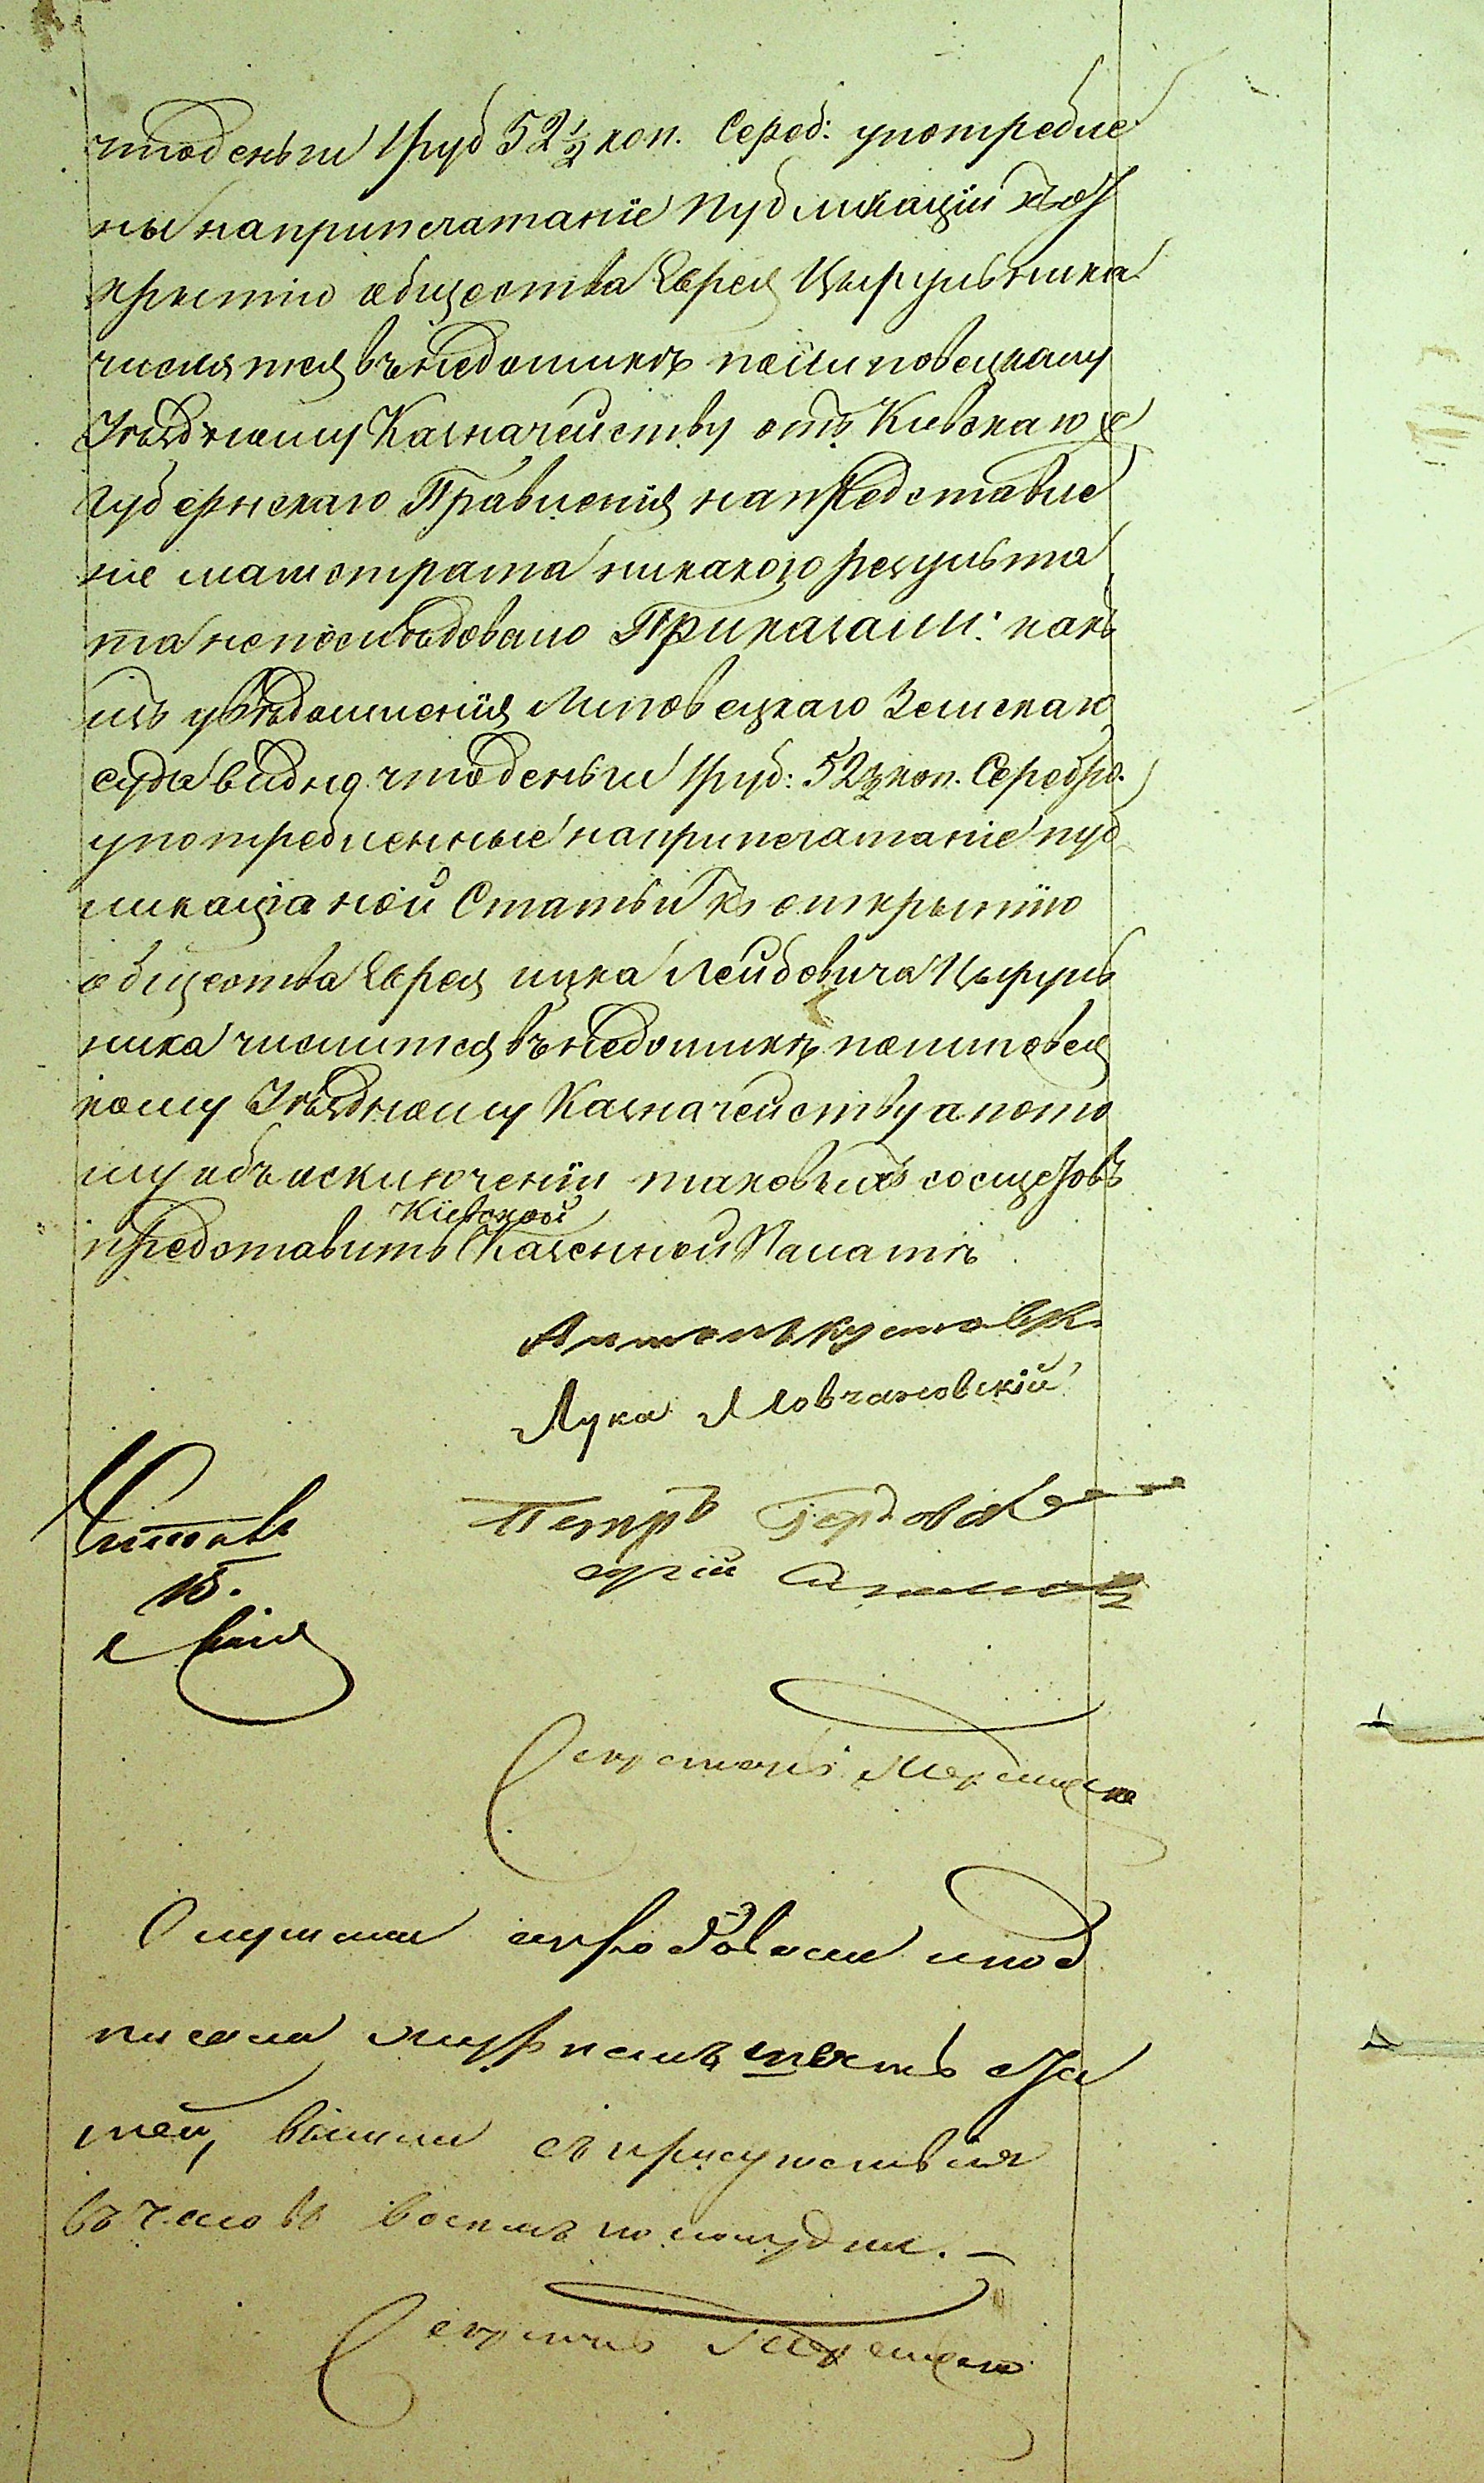 что деньги 1 руб 52 ½ коп. Сереб: употребле
ны на припечатаніе публикаціи къ от
крытію общества Еврея Цырульника
числятся въ недоимкѣ по Липовецкому
Уѣздному Казначейству отъ Кіевскаго
Губернскаго Правленія на представле
ніе магистрата никакого результа
та непоследовало Приказали: какъ
изъ увѣдомленія Липовецкаго Земскаго
суда видно что деньги 1 руб: 52 ½ коп. Серебро.
употребленные на припечатаніе пуб
ликаціаной Статьи къ открытію
общества Еврея Ицка Лейбовича Цыруль
ника числится въ недоимкѣ по Липовец
кому Уѣздному Казначейству а пото
му объ исключеніи таковыхъ со щетовъ
Кіевской
представить Казенной Палатѣ
Антонъ
Лука Мовчановскій
Петръ
Читалъ
Секретарь
Слушали и под
писали журналъ статей
вышли съ присутствія
въ часовъ по полудни. —
Секретарь